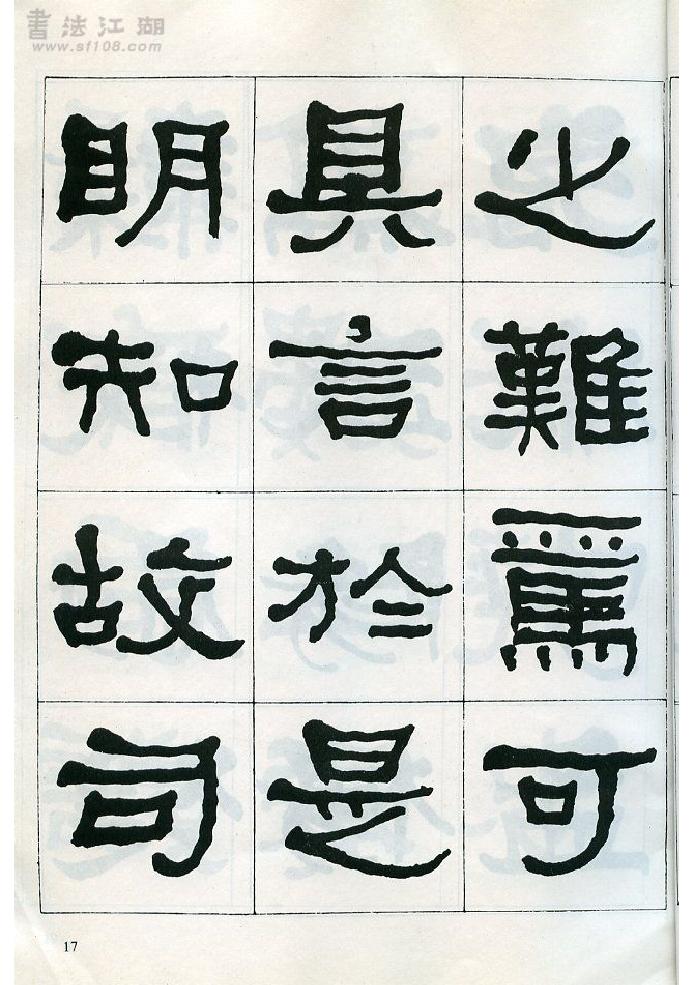 書法江湖
www.sf108.com
之難爲可
具言於是
明知故司
17